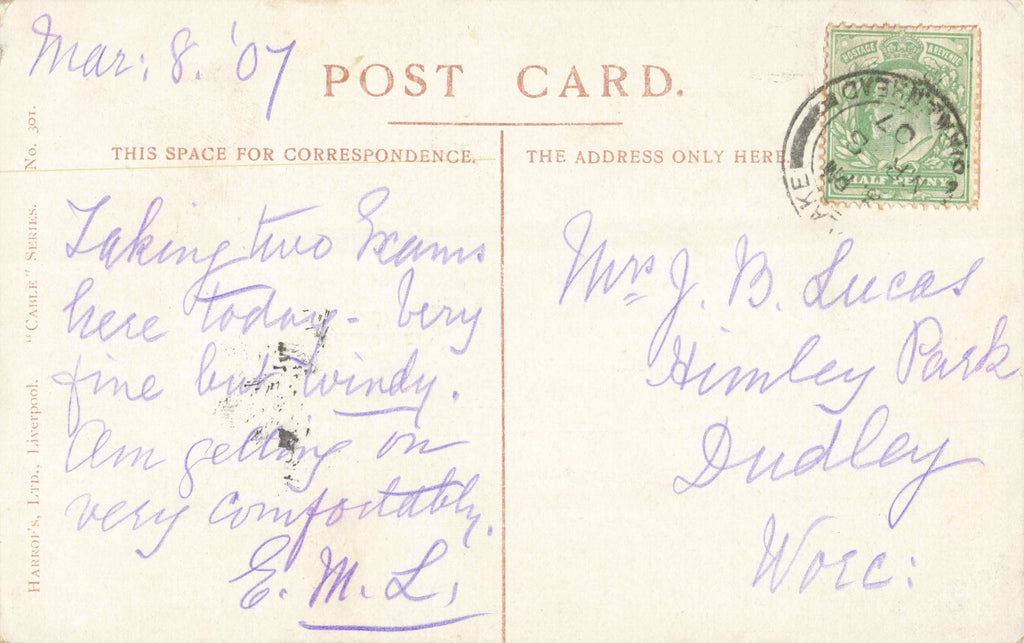 Mar: 8. '07
POST CARD.
THIS SPACE FOR CORRESPONDENCE.
THE ADDRESS ONLY HERE.
Taking two Exams
here today - Very
fine but windy.
Am getting on
very comfortably.
E. M. L.
Mrs J. B. Lucas
Himley Park
Dudley
Worc:
POSTAGE & REVENUE
HALF PENNY
07
HARROP'S, LTD., Liverpool. "CABLE" SERIES. No. 301.